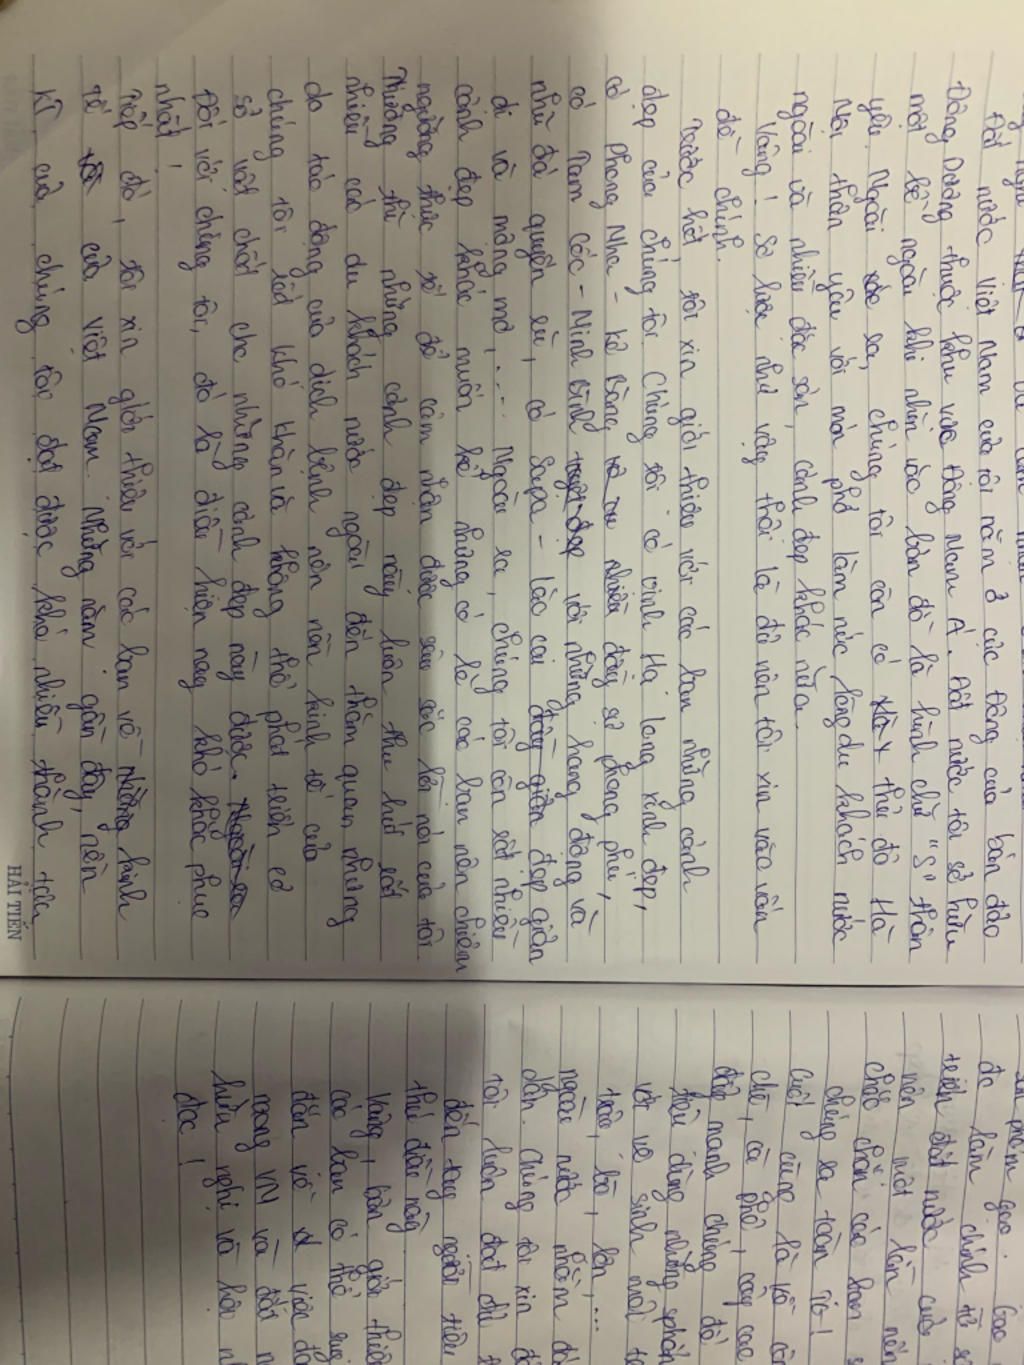 Đất nước Việt Nam của tôi nằm ở cực Đông của bán đảo
Đông Dương thuộc khu vực Đông Nam Á. Đất nước tôi sở hữu
một bề ngoài khi nhìn vào bản đồ là hình chữ "S" thân
yêu. Ngoài ra, chúng tôi còn có thủ đô Hà
Nội thân yêu với món phở làm nức lòng du khách nước
ngoài và nhiều đặc sản, cảnh đẹp khác nữa.
Vâng! Sơ lược như vậy thôi là đủ nên tôi xin vào vấn
đề chính.
Trước hết, tôi xin giới thiệu với các bạn những cảnh
đẹp của chúng tôi. Chúng tôi có vịnh Hạ Long xinh đẹp,
có Phong Nha - Kẻ Bàng nhiều đầy sự phong phú,
có Tam Cốc - Ninh Bình tuyệt đẹp với những hang động và
nhũ đá quyến rũ, có Sapa - Lào Cai đẹp giản
dị và mộng mơ,.... Ngoài ra, chúng tôi còn rất nhiều
cảnh đẹp khác muốn kể nhưng có lẽ các bạn nên chiêm
ngưỡng thực tế để cảm nhận được sâu sắc lời nói của tôi.
Thường thì những cảnh đẹp này luôn thu hút rất
nhiều các du khách nước ngoài đến thăm quan nhưng
do tác động của dịch bệnh nên nền kinh tế của
chúng tôi rất khó khăn và không thể phát triển cơ
sở vật chất cho những cảnh đẹp này được.
Đối với chúng tôi, đó là điều hiện nay khó khắc phục
nhất!
Tiếp đó, tôi xin giới thiệu với các bạn về những kinh
tế của Việt Nam. Những năm gần đây, nền
KT của chúng tôi đạt được khá nhiều thành tựu
HẢI TIẾN
phẩm gạo. Gạo
do làm chính từ
triển đất nước của
nên một lần nên
chắc chắn các bạn
chúng ta toàn
Cuối cùng là về
chè, cà phê, cây cao
đẩy mạnh chúng để
tiêu dùng những sản ph
với vệ sinh nơi
trâu, bò, lợn,...
ngoài nước nhằm
dân. Chúng tôi xin
tôi luôn đặt chỉ
đến tay người tiêu
thứ đầu năng
Vâng, bản giới thiệ
các bạn có thể suy
đắn về việc
mong VN và đất n
hữu nghị và hội
đọc!